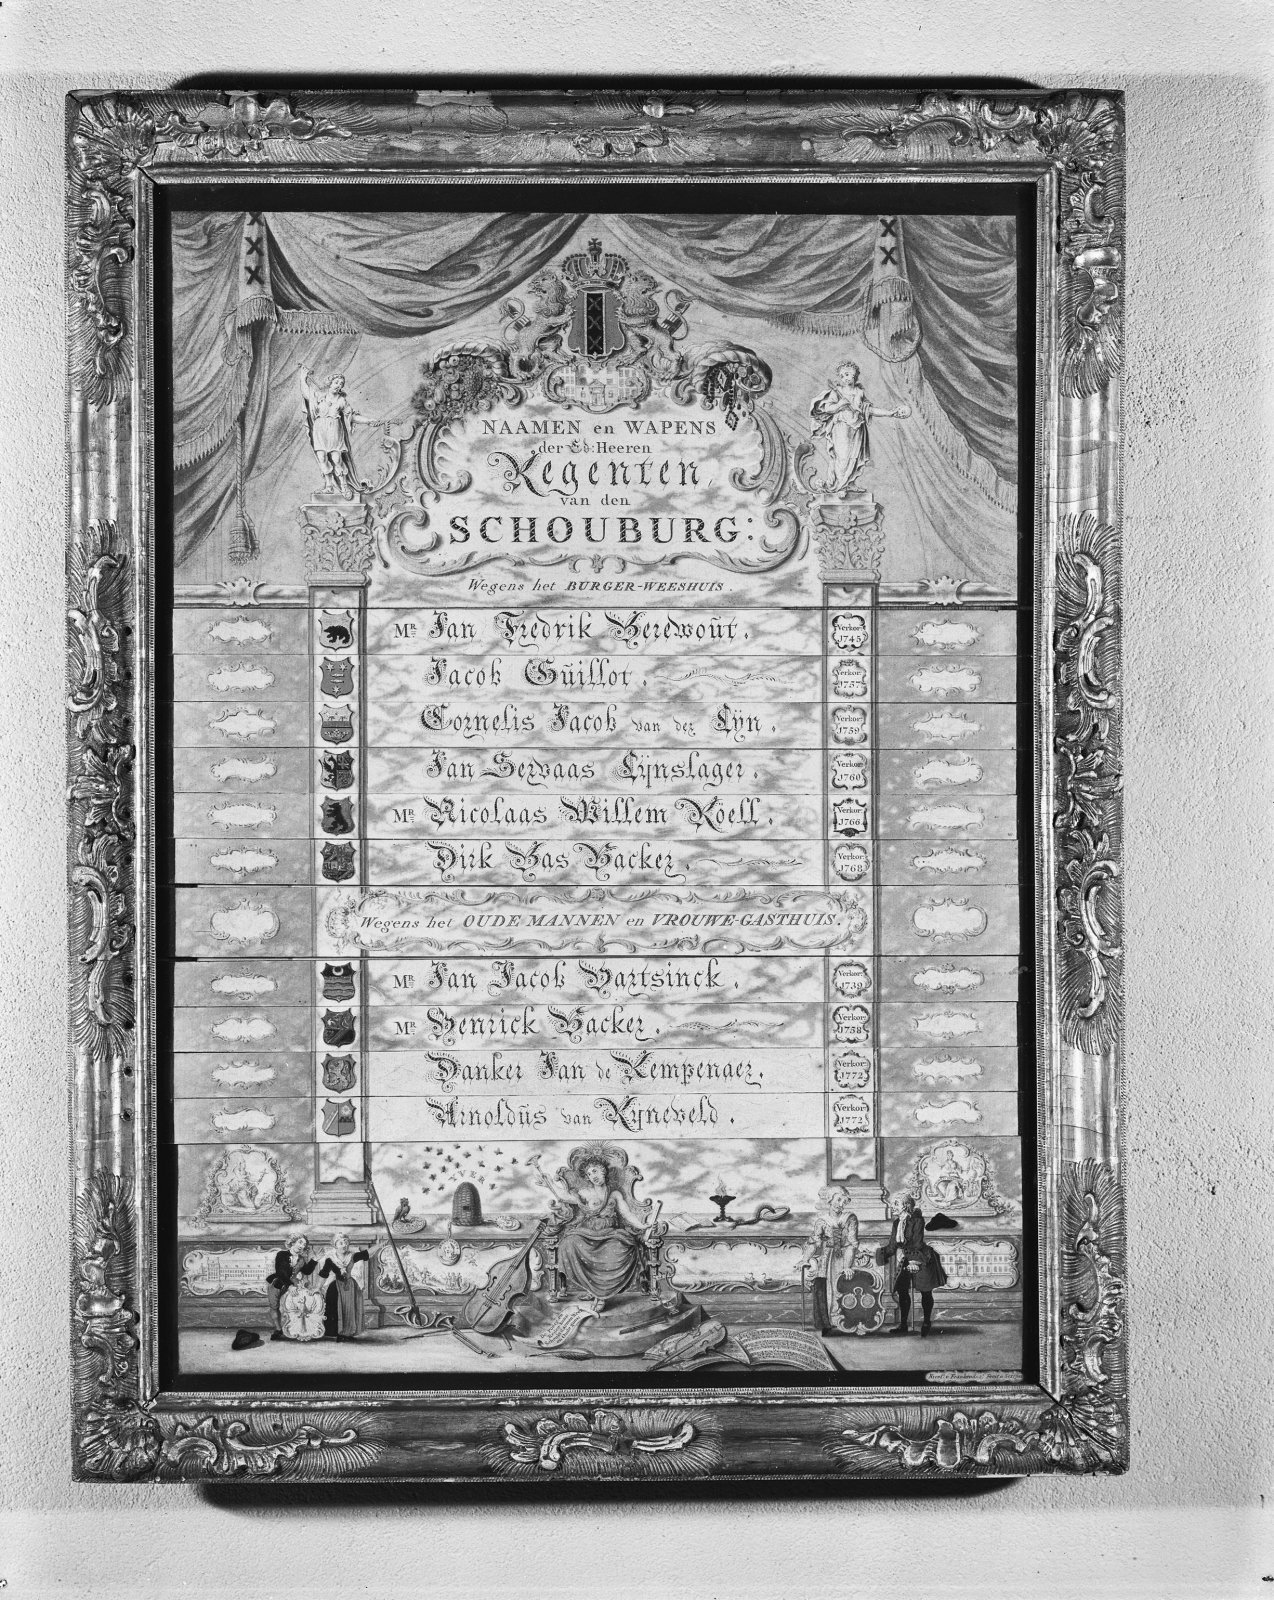 NAAMEN en WAPENS
der Ed: Heeren
Regenten
van den
SCHOUBURG:
Wegens het BURGER-WEESHUIS.
MR. Jan Fredrik Berewoūt. Verkor: 1745
Jacob Gūillot. Verkor: 1757
Cornelis Jacob van der Lÿn. Verkor: 1759
Jan Servaas Lÿnslager. Verkor: 1760
MR. Nicolaas Willem Röell. Verkor: 1766
Dirk Bas Backer. Verkor: 1768
Wegens het OUDE MANNEN en VROUWE-GASTHUIS.
MR. Jan Jacob Hartsinck. Verkor: 1739
MR. Henrick Backer. Verkor: 1758
Danker Jan de Kempenaer. Verkor: 1772
Arnoldūs van Rÿneveld. Verkor: 1772
YVER